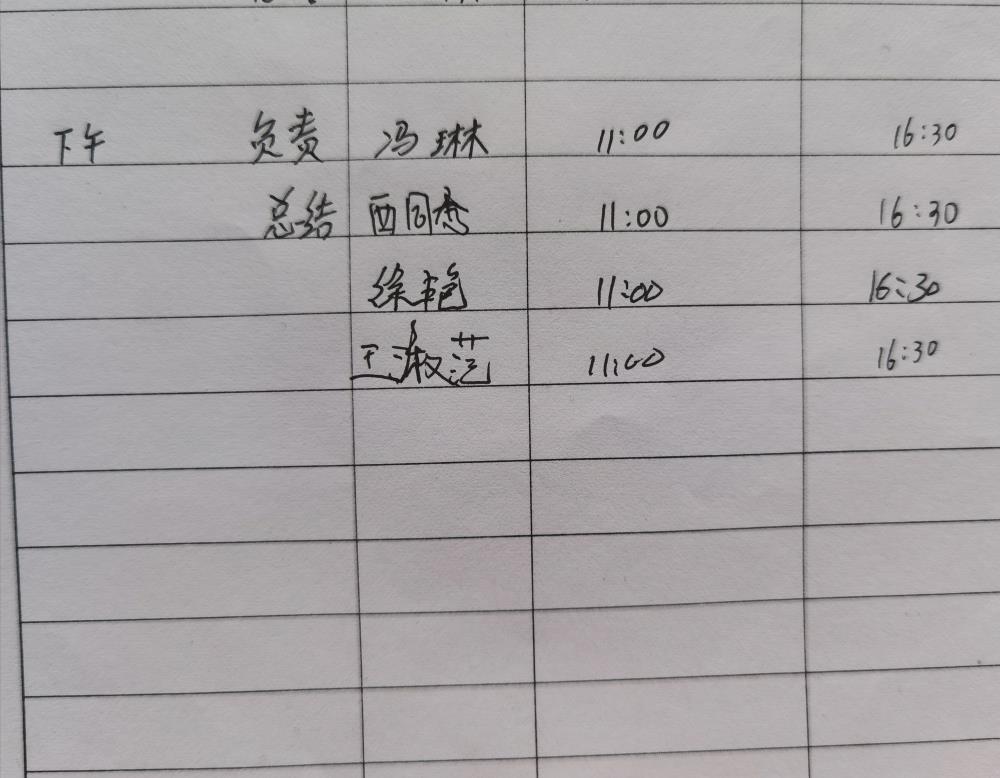 下午 负责 冯琳 11:00 16:30
总结 西同杰 11:00 16:30
徐艳 11:00 16:30
王淑范 11:00 16:30